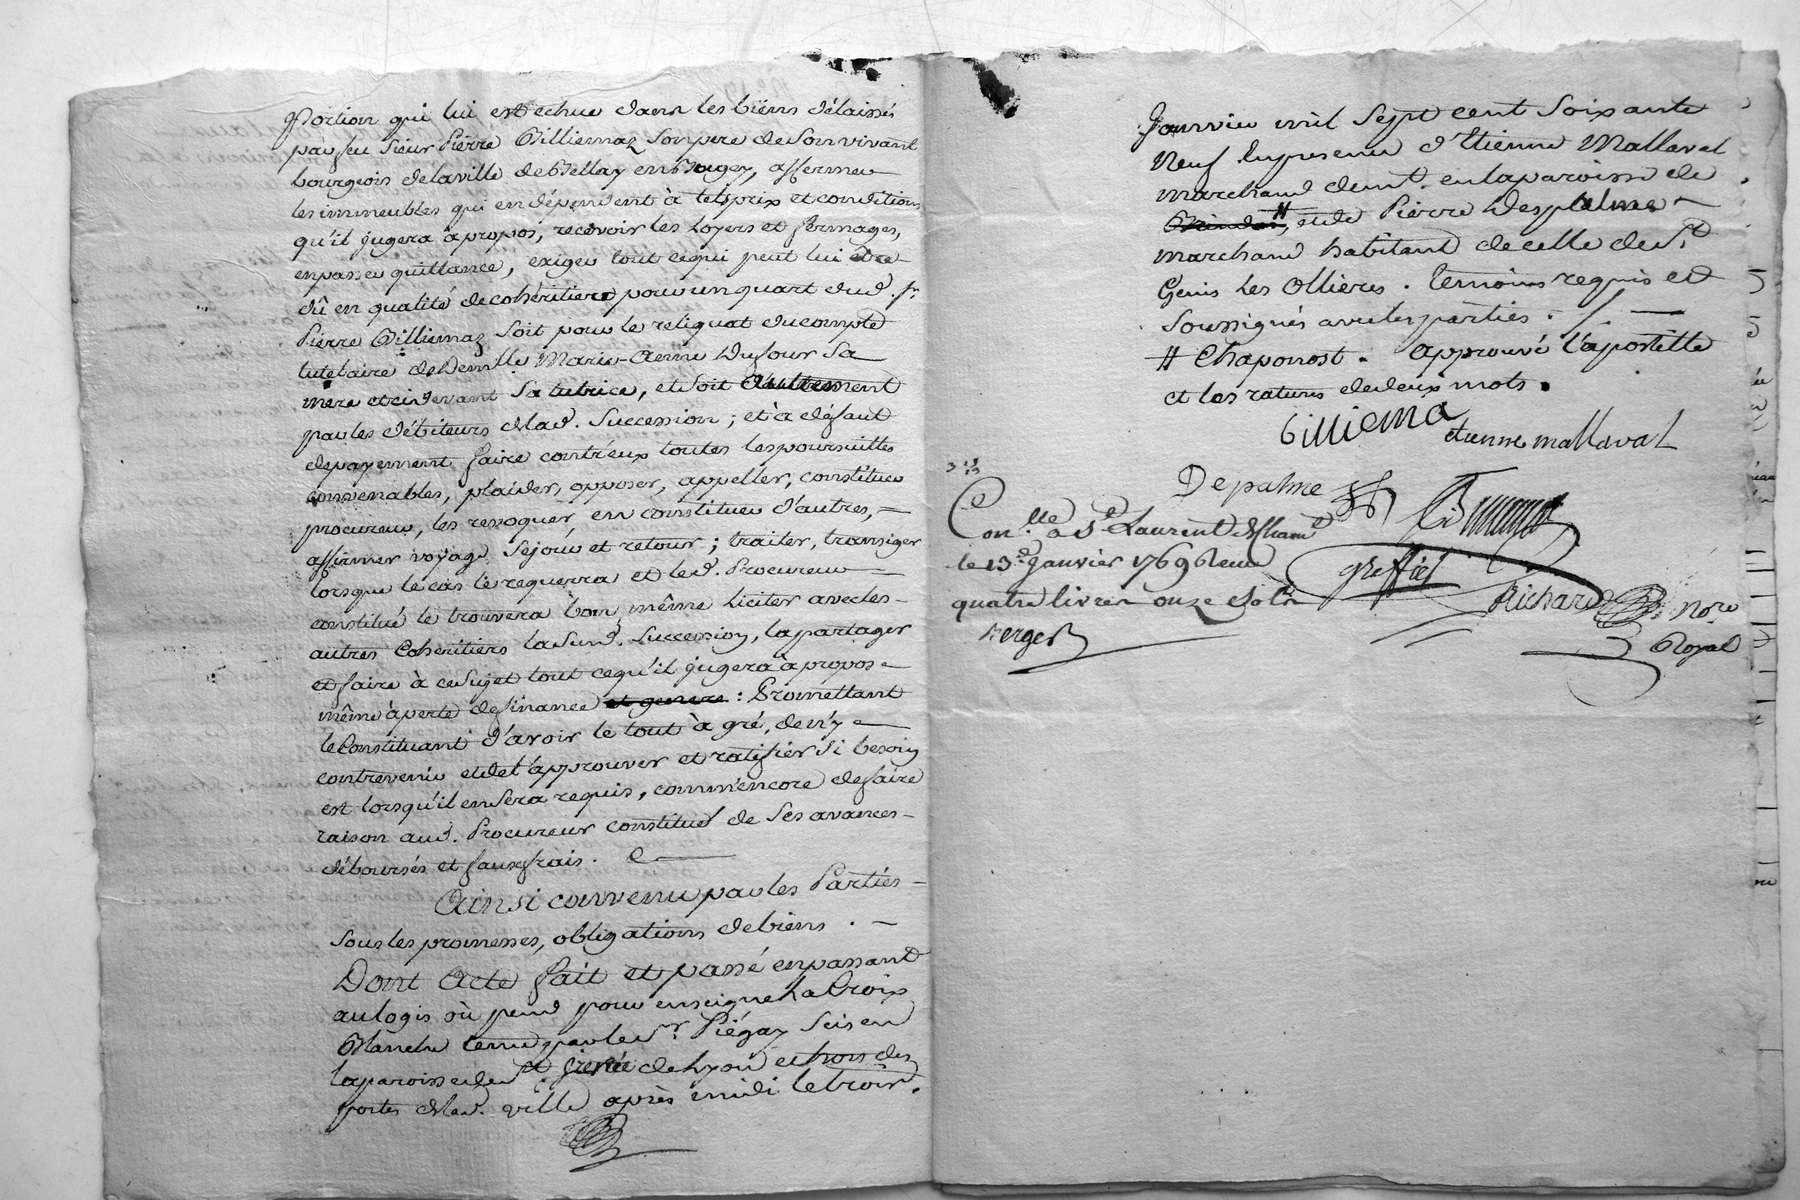 Portion qui lui est echue dans les biens délaissés
par feu Sieur Pierre Billiemaz son pere de son vivant
bourgeois de la ville de Bellay en Bugey, affermer
les immeubles qui en dépendent à tels prix et conditions
qu'il jugera à propos, recevoir les Loyers et fermages,
en passer quittance, exiger tout ce qui peut lui etre
dû en qualité de cohéritier pour un quart dud. Sr.
Pierre Billiemaz soit pour le reliquat du compte
tutelaire de Demlle Marie-Anne Dufour sa
mere et cidevant sa tutrice, et soit autrement
par les débiteurs de lad. Succession ; et à défaut
de payement faire contr'eux toutes les poursuittes
convenables, plaider, opposer, appeller, constituer
procureur, les revoquer, en constituer d'autres,
affirmer voyage séjour et retour ; traiter, transiger
lorsque le cas le requerra et led. Procureur
constitué le trouvera bon, même liciter avec les
autres Cohéritiers la susd. Succession, la partager
et faire à ce sujet tout ce qu'il jugera à propos
même à perte de finance et genere : Promettant
le Constituant d'avoir le tout à gré, de n'y
contrevenir et de l'approuver et ratifier si besoin
est lorsqu'il en sera requis, comm'encore de faire
raison aud. Procureur constitué de ses avances
débourses et faux frais.
Ainsi convenu par les Parties
sous les promesses, obligations de biens.
Dont Acte fait et passé en passant
au logis où pend pour enseigne La Croix
Blanche tenu par le Sr. Piégay scis en
la paroisse de St. Irenée de Lyon et hors des
portes de lad. ville après midi le trois
Janvier mil sept cent soixante
neuf En presence d'Etienne Mallaval
marchand demt. en la paroisse de
#, et de Pierre Depalme
marchand habitant de celle de St
Genis les Ollieres. temoins requis et
soussignés avec les parties.
# Chaponost. approuvé l'apostille
et les ratures de deux mots.
Billiema
etienne mallaval
Depalme
greffier
Richard Nore
Royal
Con.lle à St Laurent de Cham.t
le 13e. Janvier 1769 Reçu
quatre livres onze sols
Berger